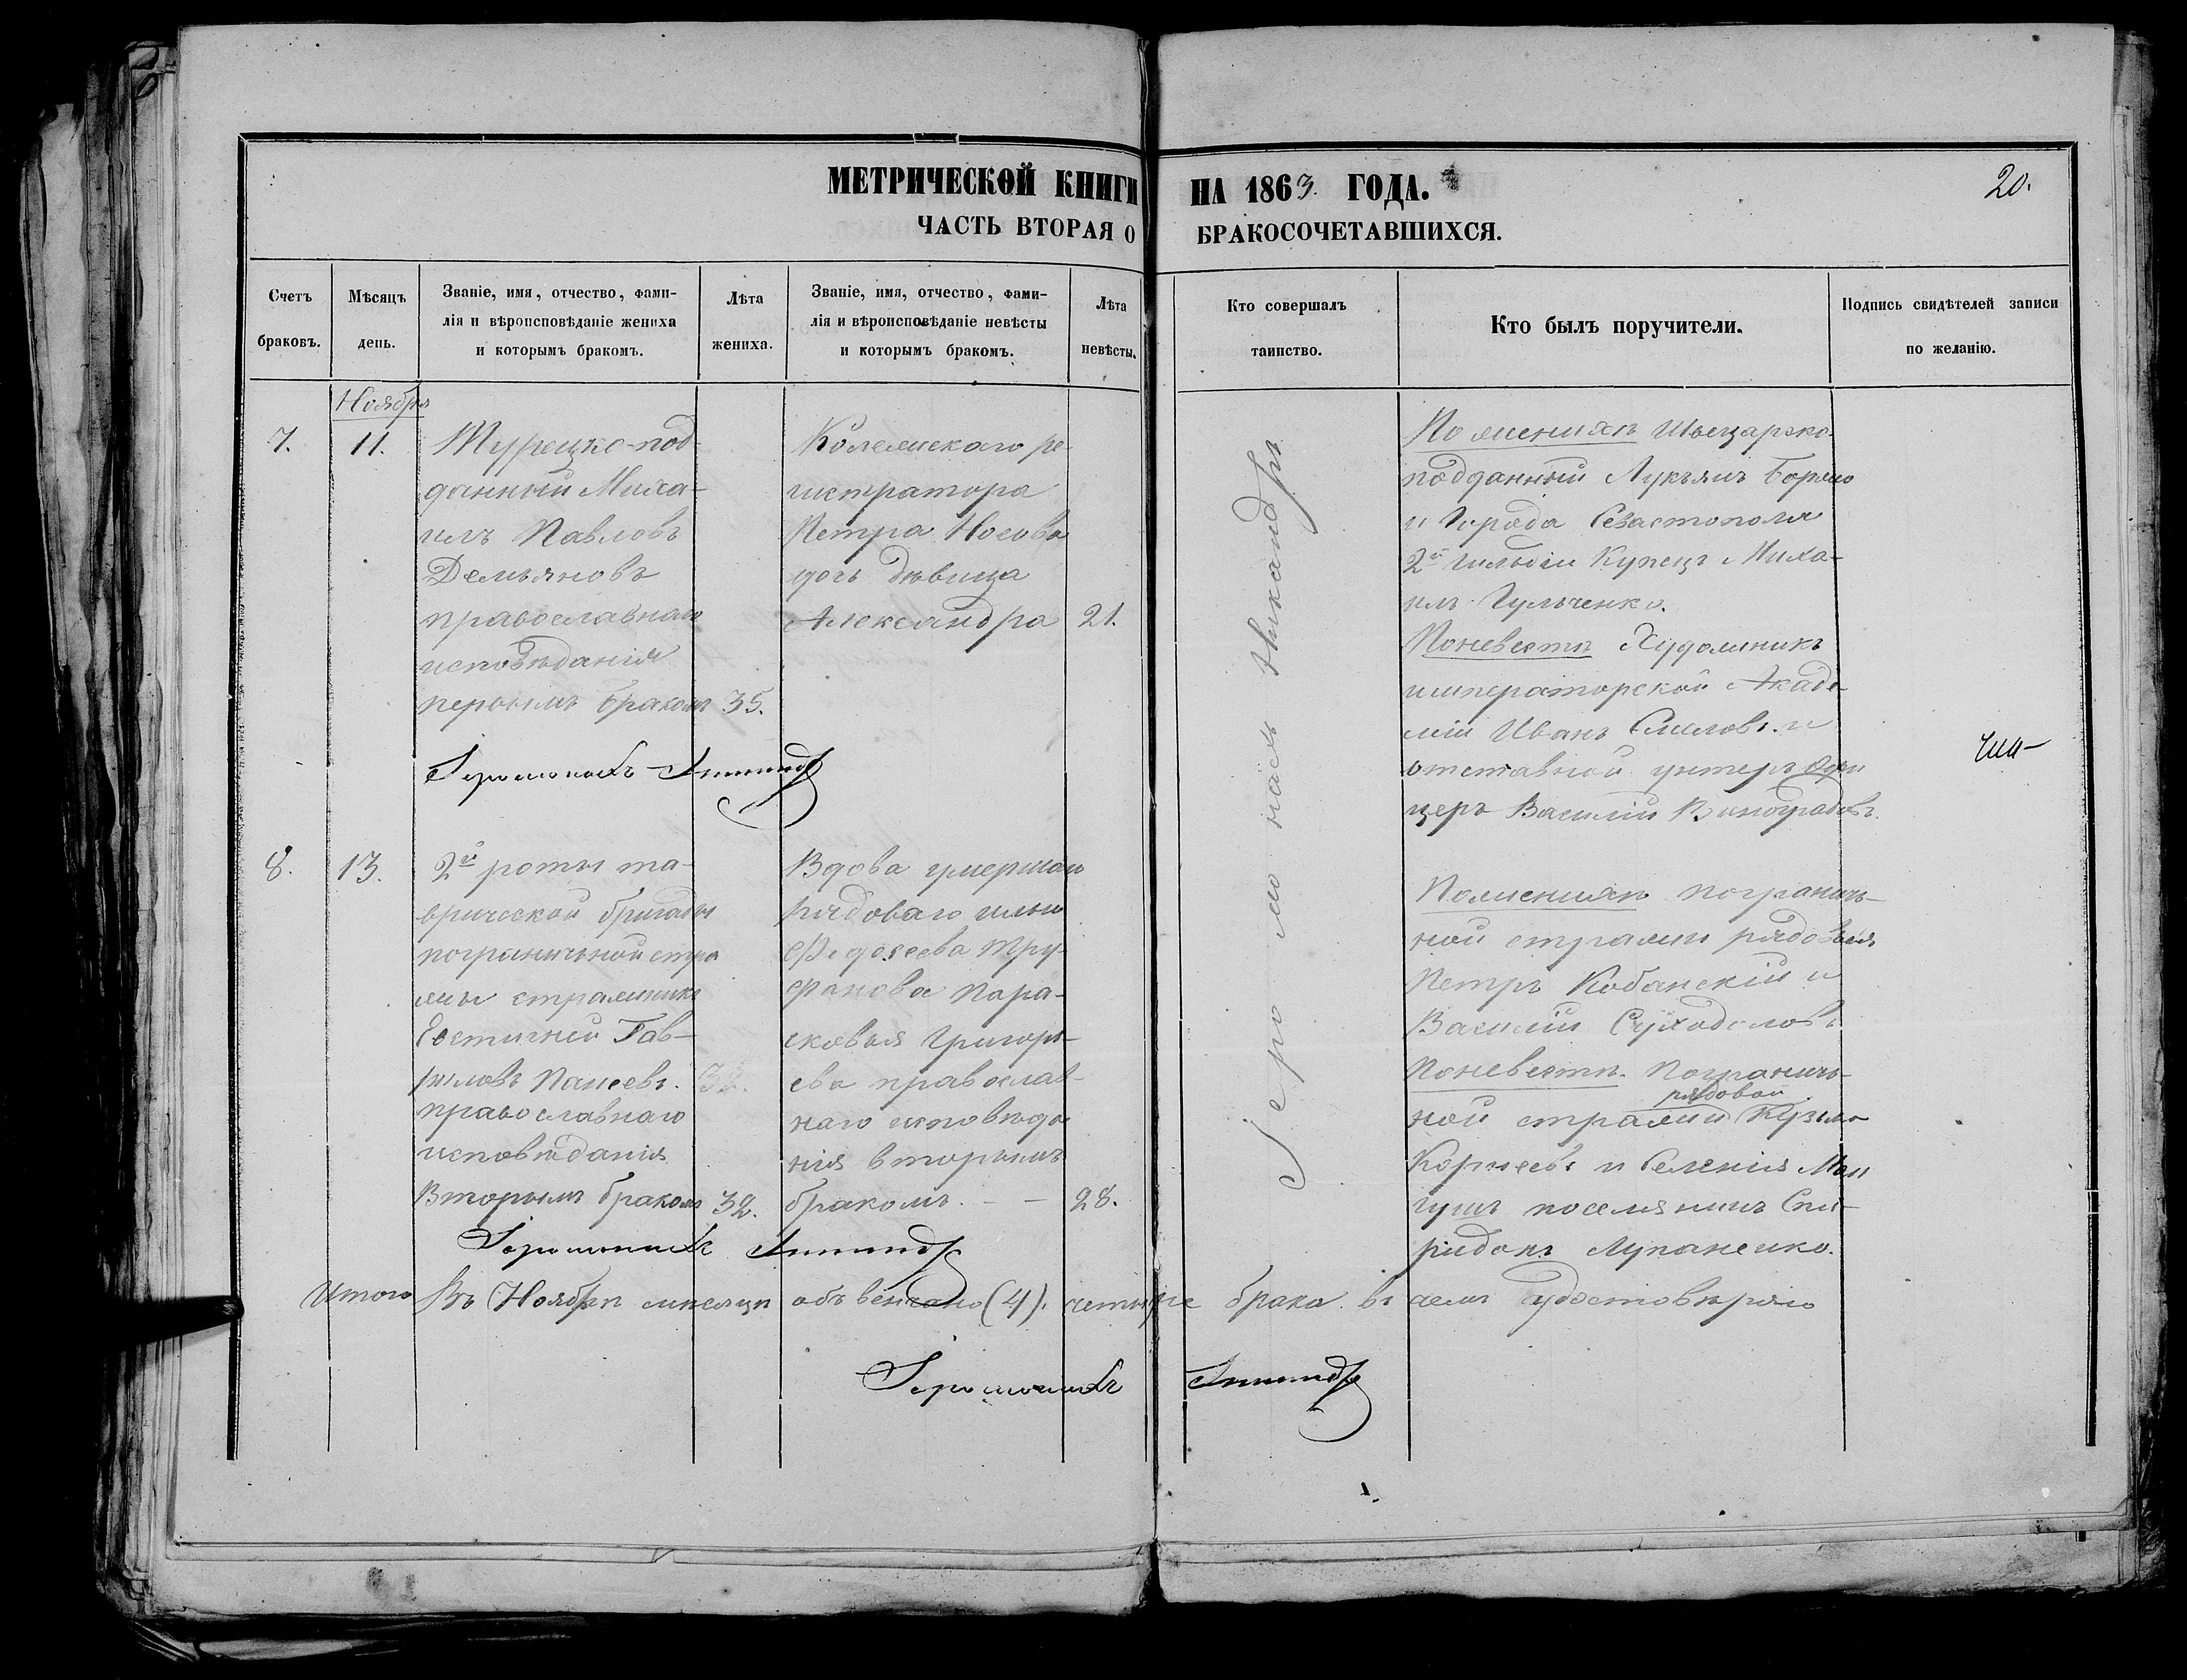 МЕТРИЧЕСКОЙ КНИГИ НА 1863. ГОДА.
20.
ЧАСТЬ ВТОРАЯ О БРАКОСОЧЕТАВШИХСЯ.
Счетъ
браковъ.
Мѣсяцъ
день.
Званіе, имя, отчество, фами-
лія и вѣроисповѣданіе жениха
и которымъ бракомъ.
Лѣта
жениха.
Званіе, имя, отчество, фами-
лія и вѣроисповѣданіе невѣсты
и которымъ бракомъ.
Лѣта
невѣсты.
Кто совершалъ
таинство.
Кто былъ поручители.
Подпись свидѣтелей записи
по желанію.
Ноября
7.
11.
Турецко-под
данный Миха-
илъ Павловъ
Демьяновъ
православнаго
исповѣданія
первымъ бракомъ
35.
Колежскаго ре
гистратора
Петра Носова
дочь дѣвица
Александра
21.
Іеромонахъ Никандръ
По женихѣ Швецарско-
подданный Лукьянъ
и Города Севастополя
2й Гильдіи Купецъ Миха-
илъ Гульченко.
По невестѣ Художникъ
императорской Акаде-
міи Иванъ и
отставной унтеръ офи
церъ Василій Виноградовъ.
Іеромонахъ
8.
13.
2й роты та-
врической бригады
пограничной стра
жи стражникъ
Евстигней Гав-
риловъ
православнаго
исповѣданія
Вторымъ бракомъ
32.
Вдова умершаго
рядоваго Ильи
Федосеева Тру-
фанова Пара-
сковья Григорь-
ева православ-
наго исповѣда
нія вторымъ
бракомъ. – –
28.
По женихѣ погранич-
ной стражи рядовыя
Петръ Кобанскій и
Василій Суходоловъ
По невестѣ. Погранич-
рядовой
ной стражи Кузьма
Корнеевъ и Селенія Мон
гушъ поселянинъ Спи-
ридонъ
Іеромонахъ
Итого Въ Ноябрѣ мѣсяцѣ объвенчано (4). четыре брака. въ чемъ удостовѣряю
Іеромонахъ